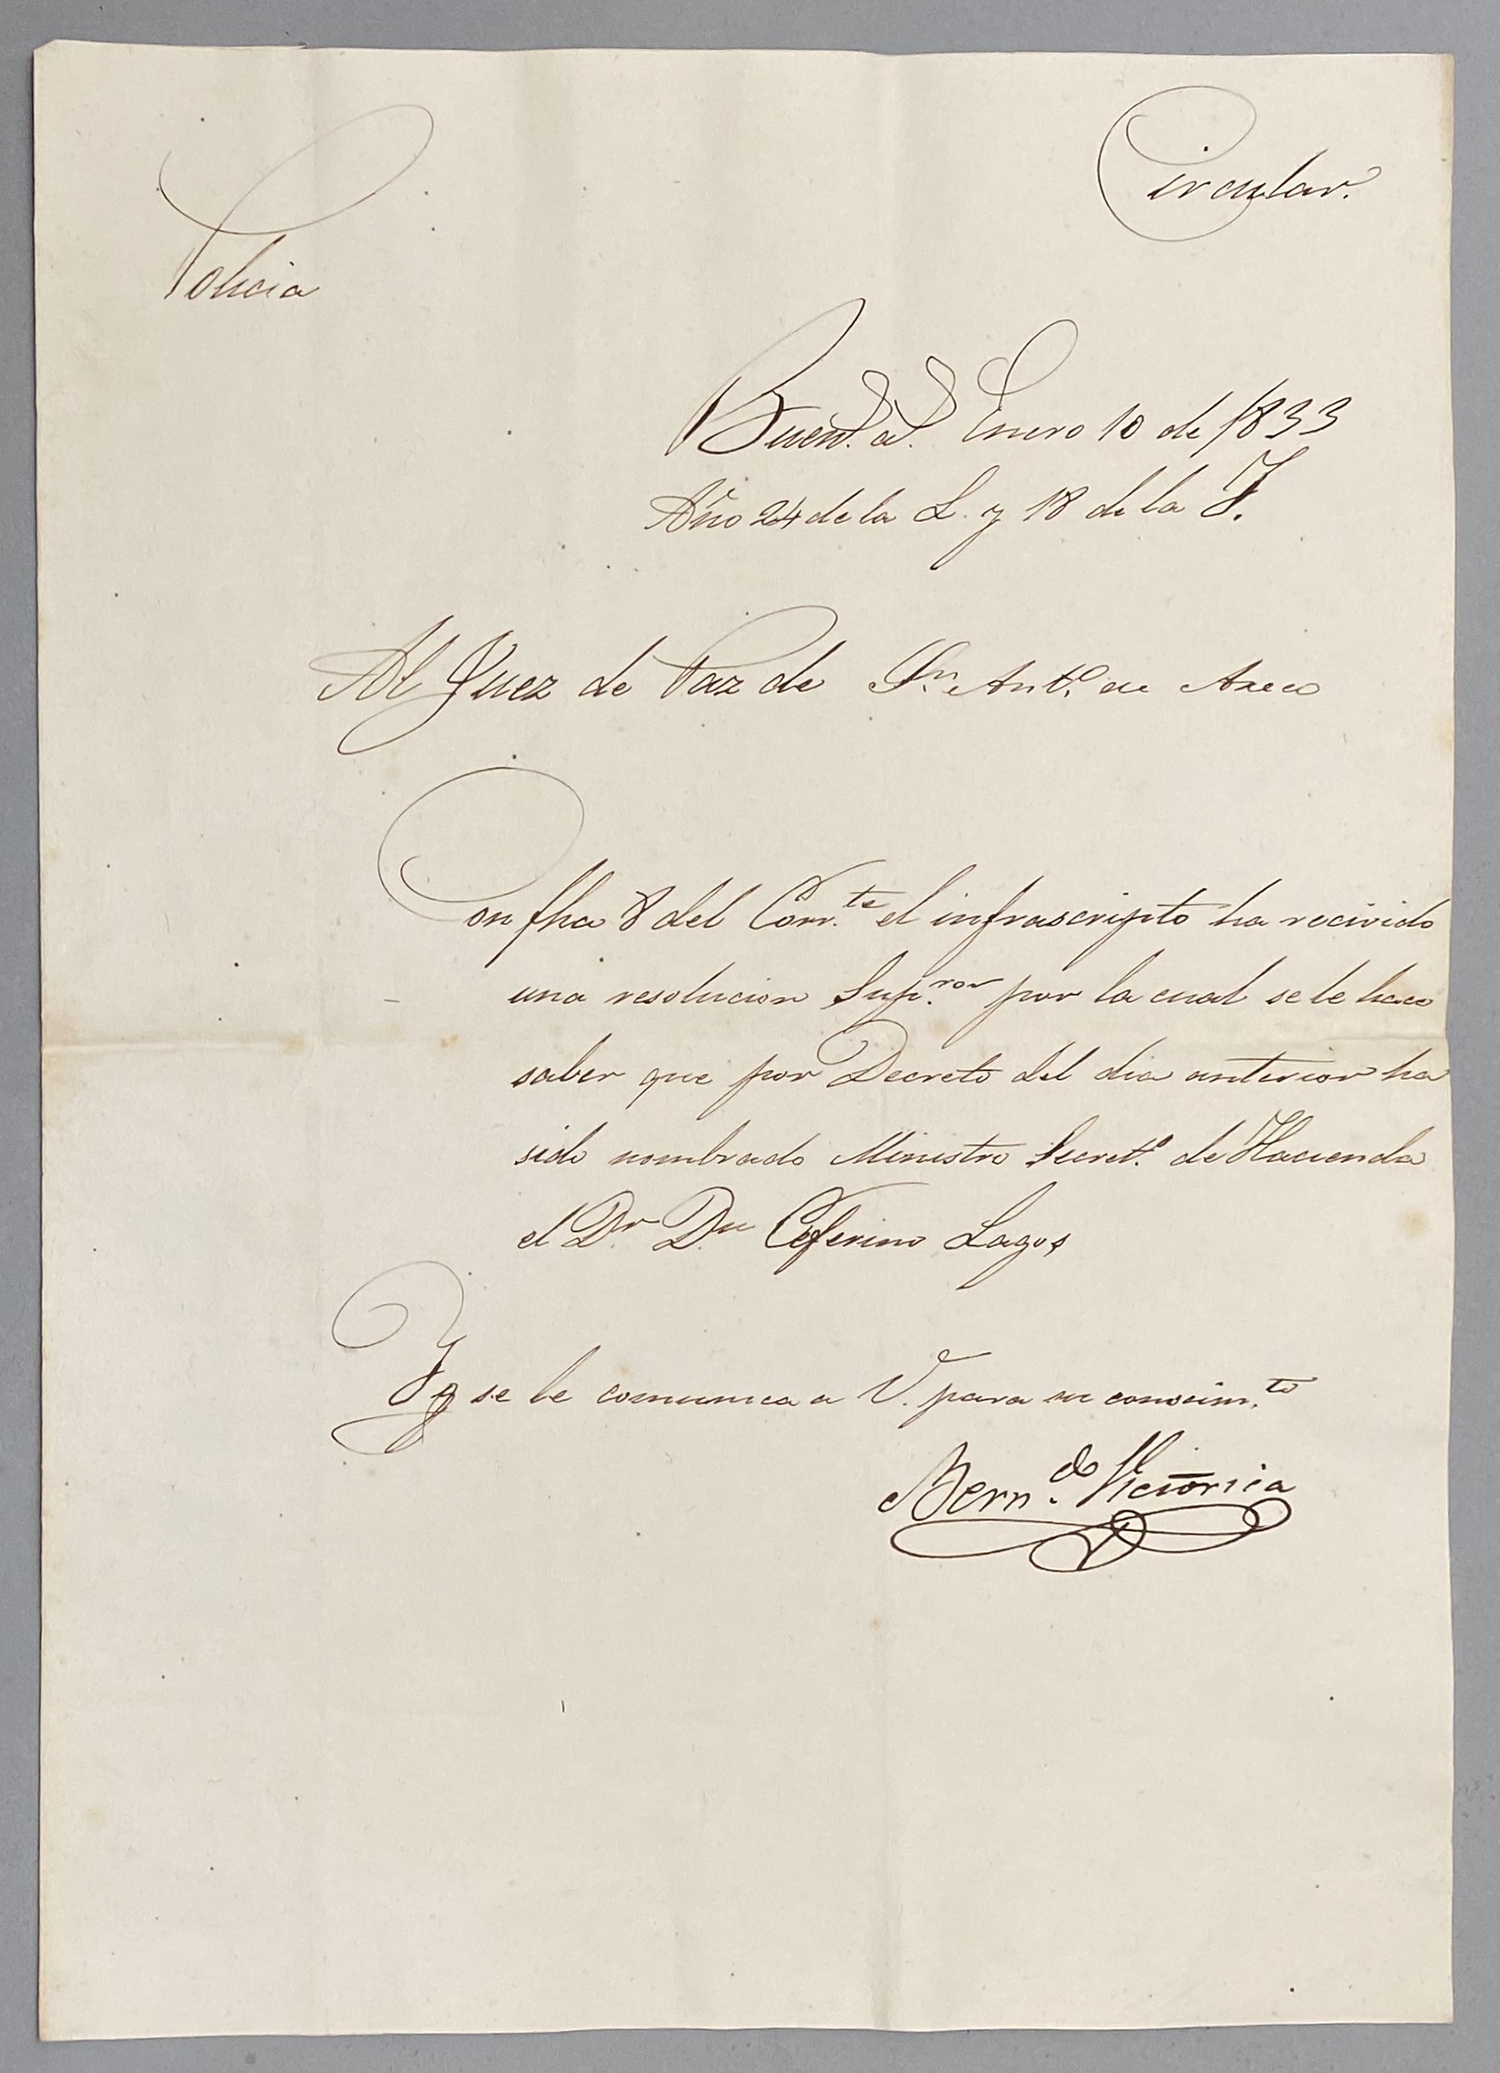 Circular.
Policia
Buens. as. Enero 10 de 1833
Año 24 de la L. y 18 de la Y.
Al Juez de Paz de Sn. Anto. de Areco
Con fha 8 del Corrte. el infrascripto ha recivido
una resolucion Sup.ror por la cual se le hace
saber que por Decreto del dia anterior ha
sido nombrado Ministro Secreto. de Hacienda
el Dr Dn Ceferino Lagos
Y q se le comunica a V. para su conocim.to
Bern.do Victorica